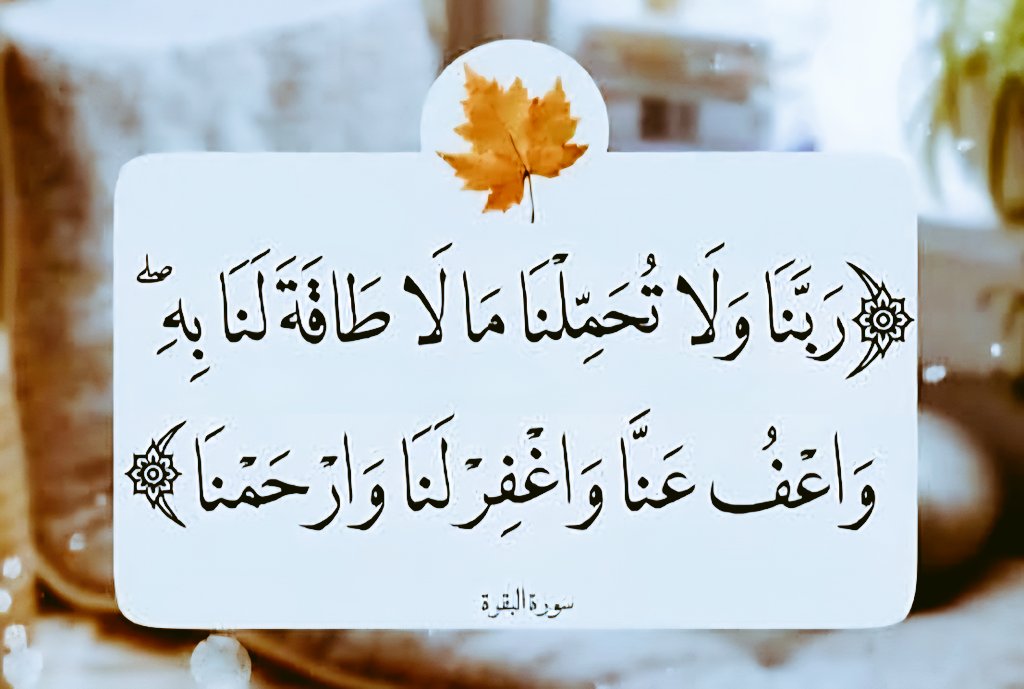 ﴿رَبَّنَا وَلَا تُحَمِّلْنَا مَا لَا طَاقَةَ لَنَا بِهِ ۖ
وَاعْفُ عَنَّا وَاغْفِرْ لَنَا وَارْحَمْنَا﴾
سورة البقرة